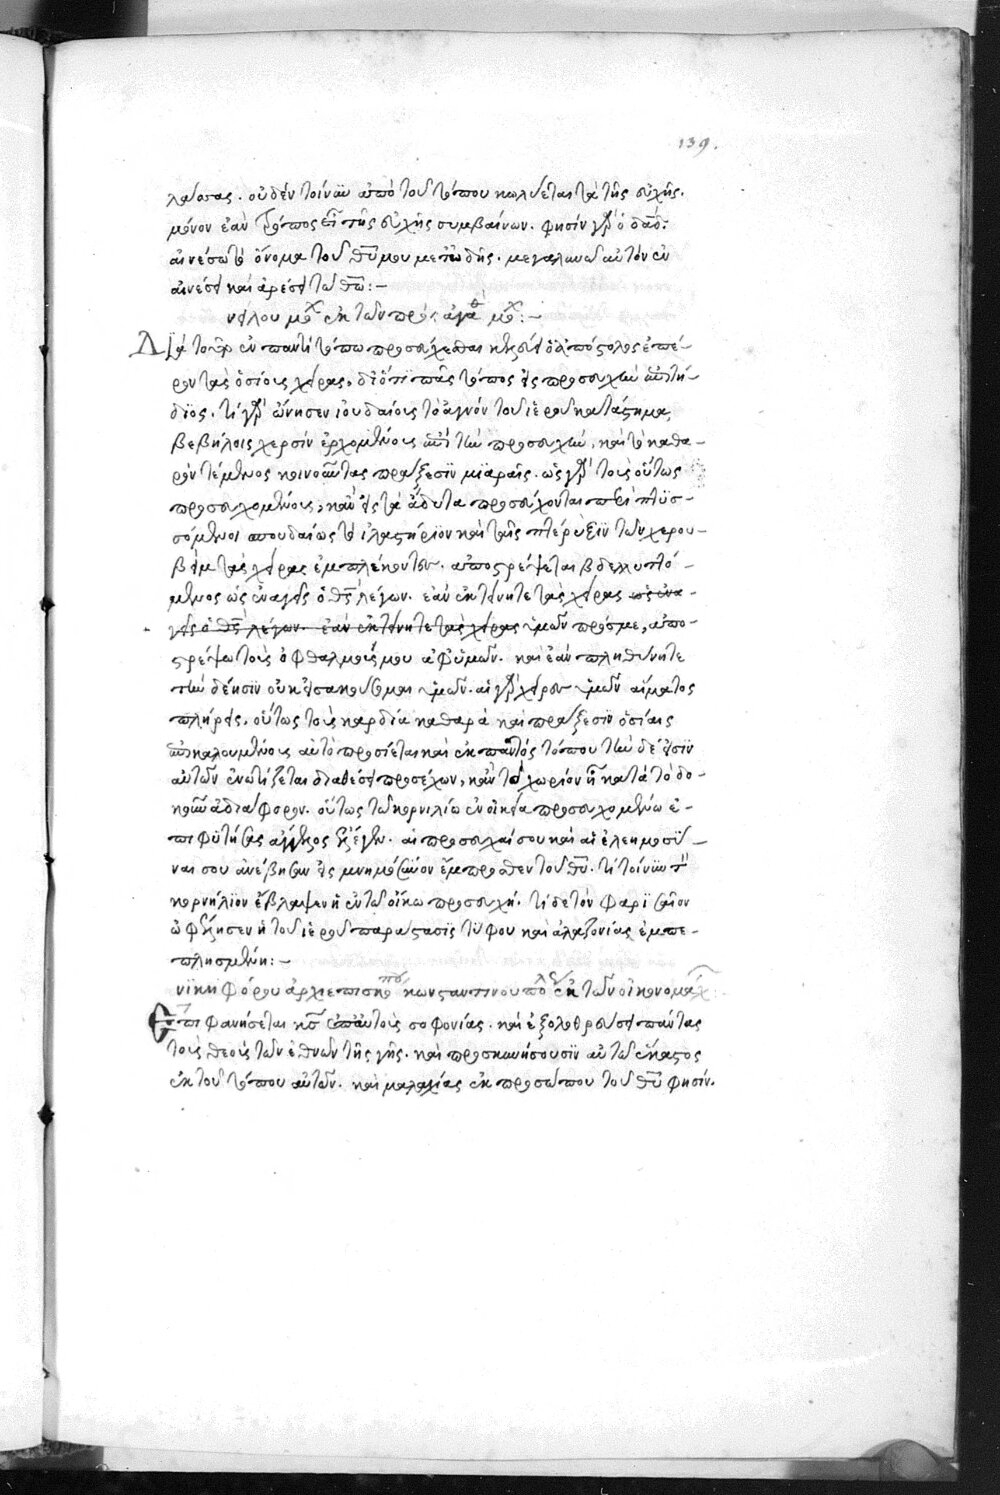 139.
λαύσας. οὐδὲν τοίνυν ἀπὸ τοῦ τόπου κωλύεται τὰ τῆς εὐχῆς.
μόνον ἐὰν ὁ τρόπος εἴη τῆς εὐχῆς συμβαίνων. φησὶν γὰρ ὁ δαδ:
αἰνέσω τὸ ὄνομα τοῦ θυ μου μετ' ὠδῆς. μεγαλυνῶ αὐτὸν ἐν
αἰνέσει καὶ ἀρέσει τῶ θω:—
νείλου μοχ ἐκ τῶν πρὸς ἀγαθ μοχ:—
Διά τοι ἐν παντὶ τόπω προσεύχεσθαι κελεύει ὁ ἀπόστολος ἐπαί-
ροντας ὁσίους χεῖρας, διότι πᾶς τόπος εἰς προσευχὴν ἐπιτή-
δϊος. τί γὰρ ὤνησεν ἰουδαίους τὸ ἁγνὸν τοῦ ἱεροῦ κατάστημα,
βεβήλοις χερσὶν ἐρχομένους ἐπὶ τὴν προσευχὴν, καὶ τὸ καθα-
ρὸν τέμενος κοινοῦντας πράξεσϊν μϊαραῖς. ὡς γὰρ τοὺς οὕτως
προσευχομένους, κἂν εἰς τὰ ἄδυτα προσεύχονται περιπτυσ-
σόμενοι σπουδαίως τὸ ἱλαστήριον καὶ ταῖς πτέρυξϊν τῶν χερου-
βὶμ τὰς χεῖρας ἐμπλέκοντες. ἀποστρέφεται βδελυττό-
μενος ὡς ἐναγεῖς ὁ θς λέγων. ἐὰν ἐκτείνητε τὰς χεῖρας ὡς ἐνα-
γεῖς ὁ θς λέγων. ἐὰν ἐκτείνητε τὰς χεῖρας ὑμῶν πρός με, ἀπο-
στρέψω τοὺς ὀφθαλμούς μου ἀφ' ὑμῶν. καὶ ἐὰν πληθύνητε
τὴν δέησϊν οὐκ εἰσακούσομαι ὑμῶν. αἱ γὰρ χεῖρες ὑμῶν αἵματος
πλήρεις. οὕτως τοὺς καρδία καθαρᾶ καὶ πράξεσϊν ὁσίαις
ἐπικαλουμένους αὐτὸ προσίεται καὶ ἐκ παντὸς τόπου τὴν δέησϊν
αὐτῶν ἐνωτίζεται διαθέσει προσέχων, κἂν τὸ χωρίον ἦ κατὰ τὸ δο-
κοῦν ἀδιάφορον. οὕτως τῶ κορνιλίω ἐν οἰκεία προσευχομένω ἐ-
πιφοιτήσας ἄγγελος ἔλεγεν. αἱ προσευχαί σου καὶ αἱ ἐλεημοσύ-
ναι σου ἀνέβησαν εἰς μνημόσυνον ἔμπροσθεν τοῦ θυ. τί τοίνυν τὸν
κορνήλϊον ἔβλαψεν ἡ ἐν τῶ οἴκω προσευχή. τί δὲ τὸν φαρϊσαῖον
ὠφέλησεν ἡ τοῦ ἱεροῦ παράστασϊς τύφου καὶ ἀλαζονίας ἐμπε-
πλησμένη:—
νϊκηφόρου ἀρχιεπισκόπου κωνσταντινουπόλεως ἐκ τῶν οἰκονομαχ:
Επιφανήσεται κς ἐπ' αὐτοὺς σοφονίας. καὶ ἐξολοθρεύσει πάντας
τοὺς θεοὺς τῶν ἐθνῶν τῆς γῆς. καὶ προσκυνήσουσϊν αὐτῶ ἕκαστος
ἐκ τοῦ τόπου αὐτῶν. καὶ μαλαχίας ἐκ προσώπου τοῦ θυ φησίν.